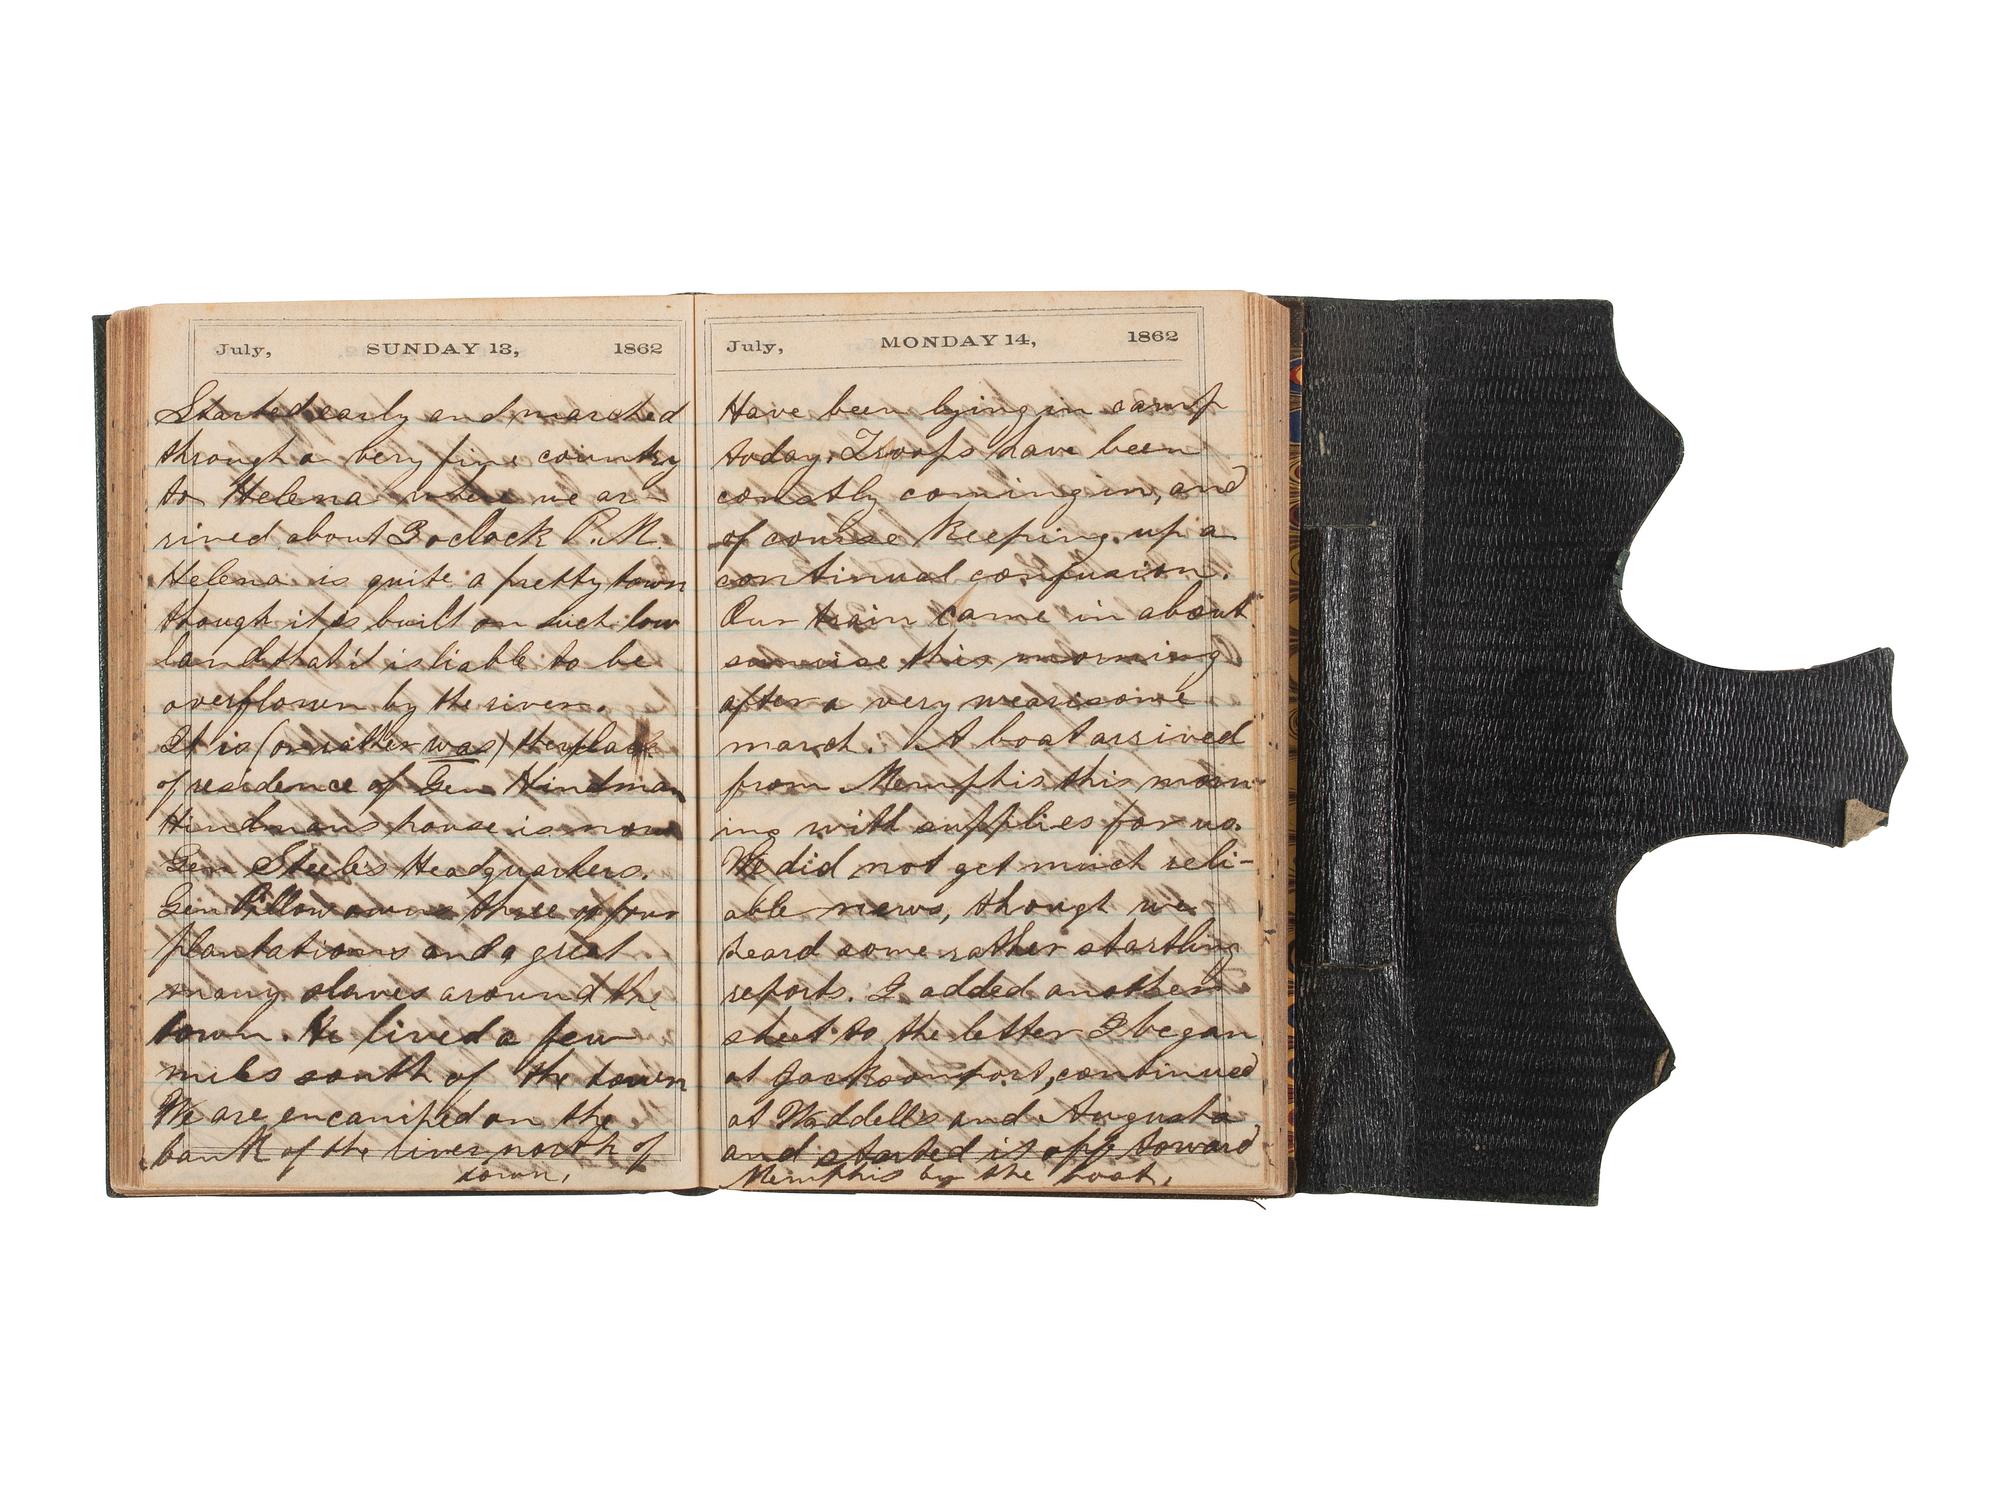 July, SUNDAY 13, 1862
Started early and marched
through a very fine country
to Helena where we ar-
rived about 3 oclock P.M.
Helena is quite a pretty town
though it is built on such low
land that it is liable to be
overflown by the river.
It is (or rather was) the place
of residence of Gen Hindman
Hindmans house is now
Gen Steele's Headquarters.
Gen Pillow owns three or four
plantations and a great
many slaves around the
town. He lived a few
miles south of the town
We are encamped on the
bank of the river north of
town.
July, MONDAY 14, 1862
Have been lying in camp
today. Troops have been
constly coming in, and
of course keeping up a
continual confusion.
Our train came in about
sunrise this morning
after a very wearisome
march. A boat arrived
from Memphis this morn-
ing with supplies for us.
We did not get much reli-
able news, though we
heard some rather startling
reports. I added another
sheet to the letter I began
at Jacksonport, continued
at Waddell's and Augusta
and started it off toward
Memphis by the boat.